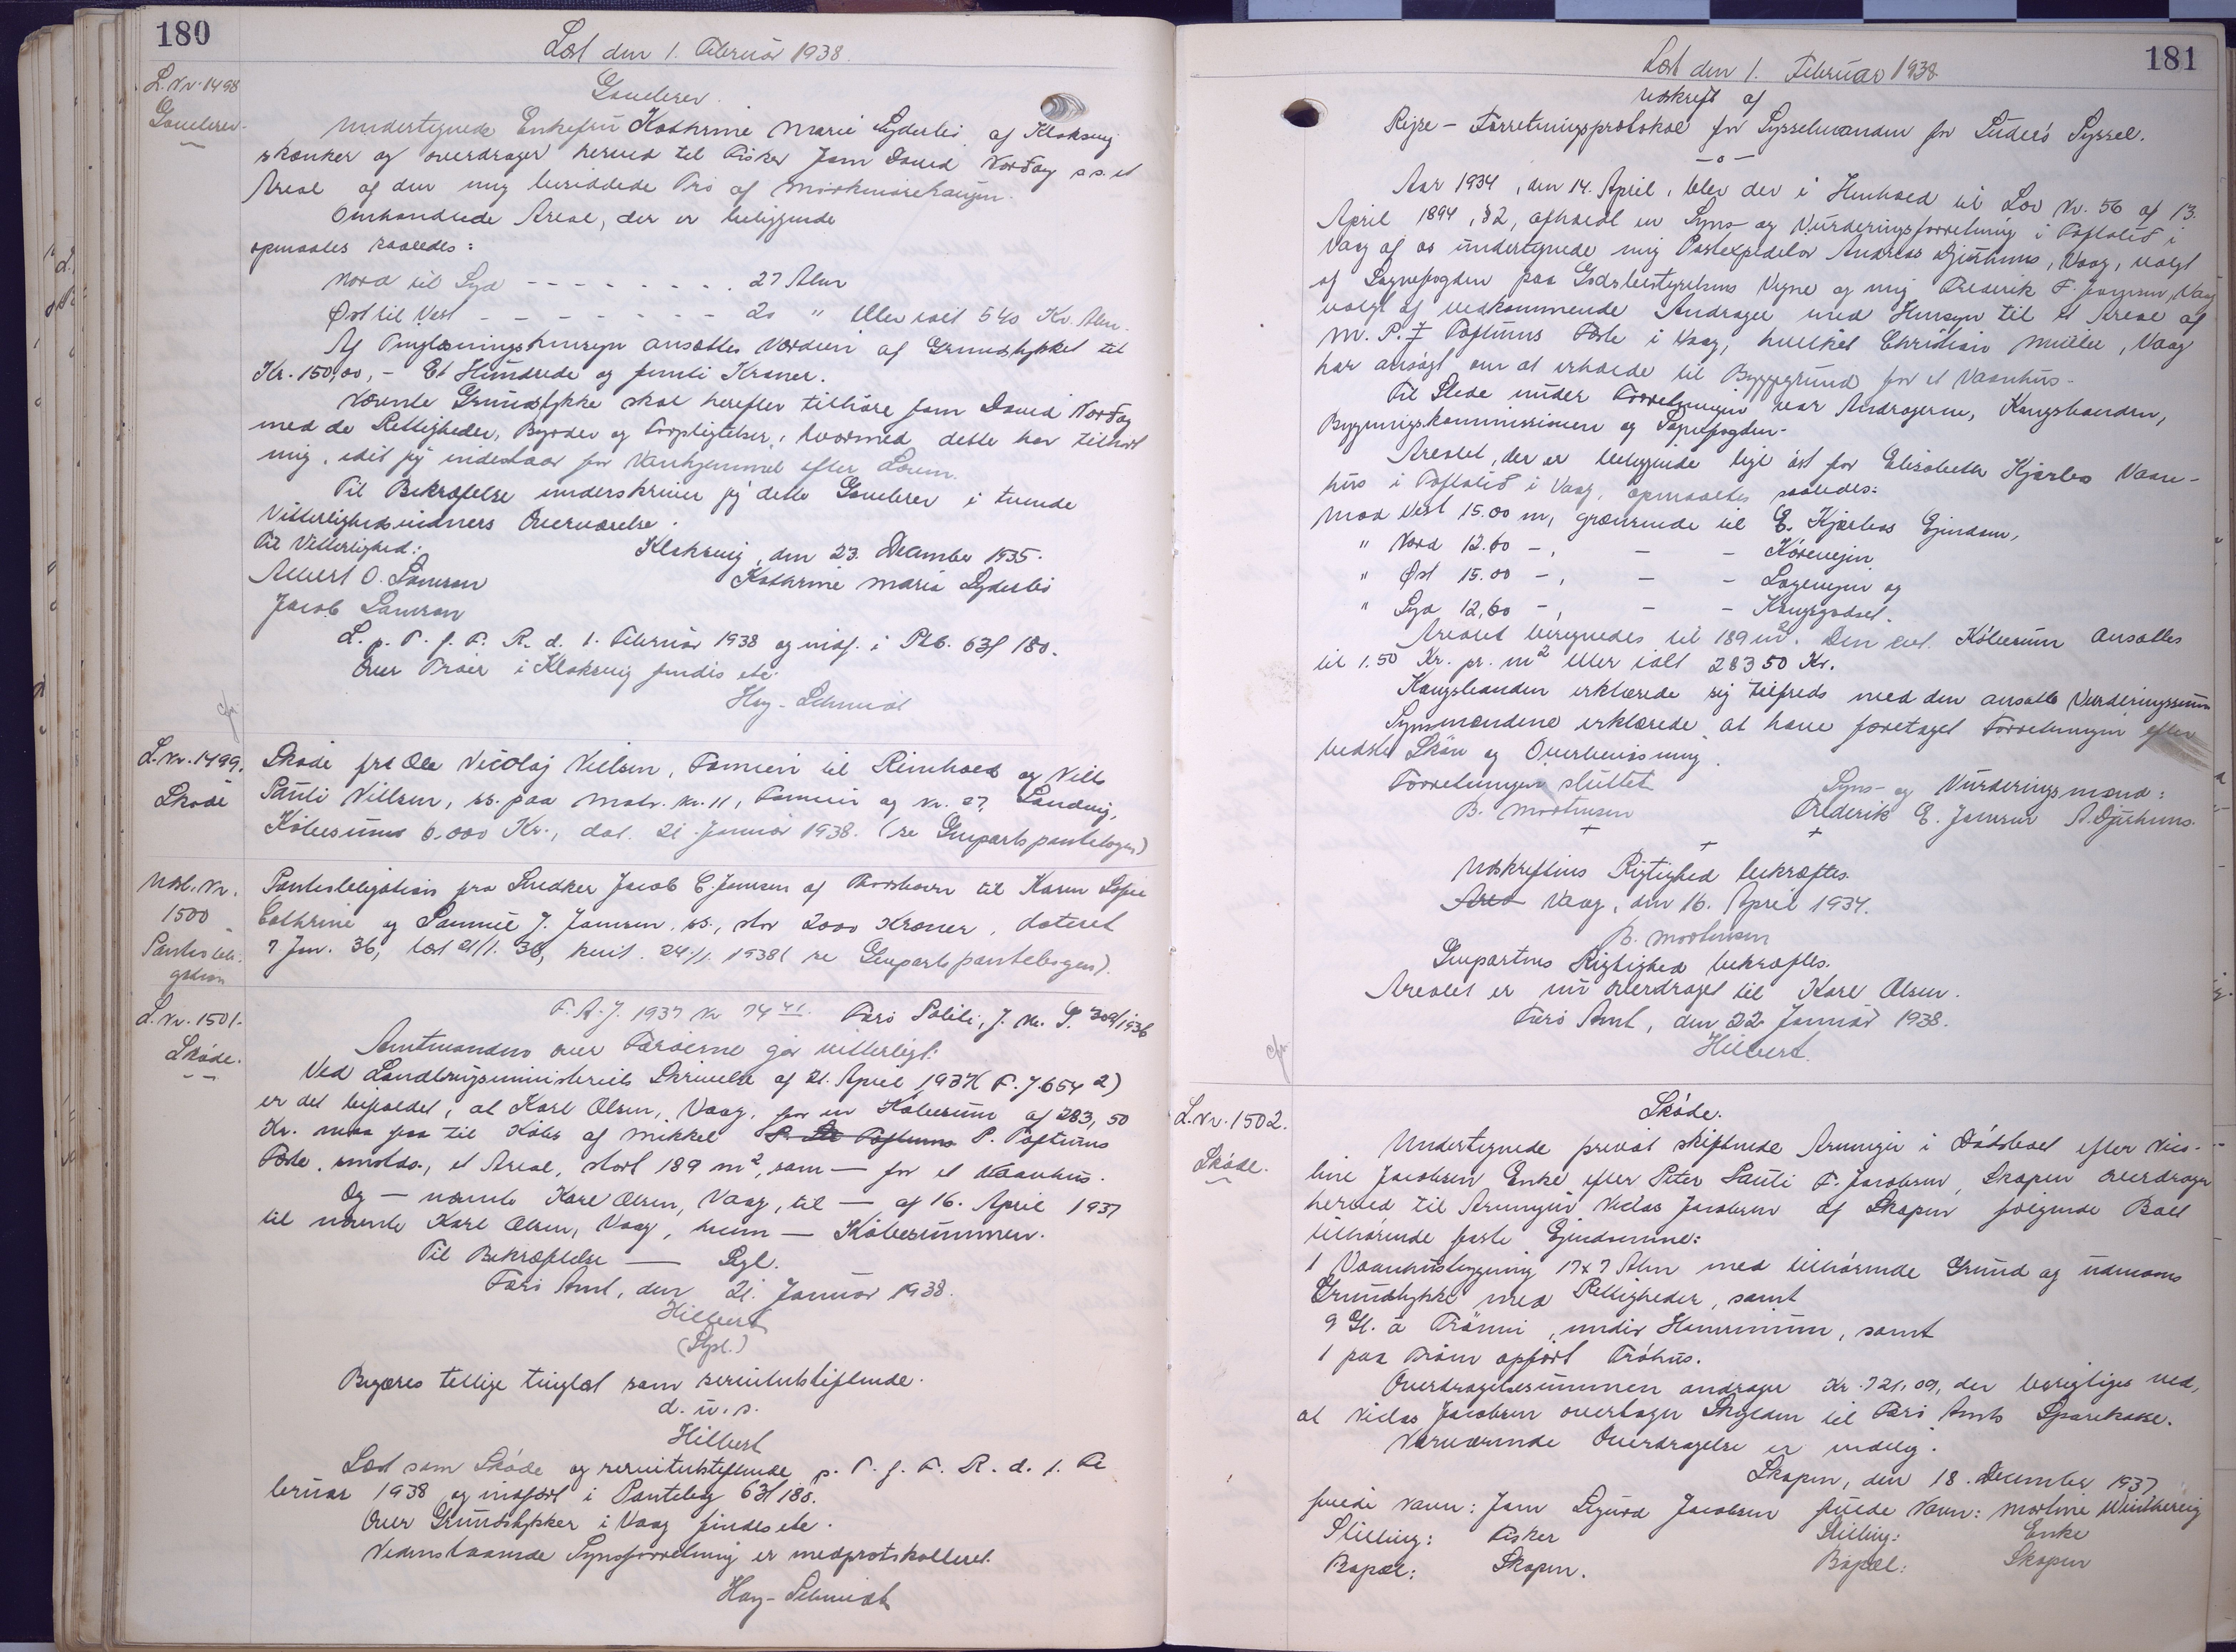 180
Læst den 1. Februar 1938.
L. Nr. 1498
Gavebrev.
Gavebrev.
Undertegnede Enkefru Kathrine Marie Lyderbo af Klaksvig
skænker og overdrager herved til Fisker Jam David Norðoy ss. et
Areal af den mig tilskødede Trö af
Omhandlede Areal, der er beliggende
opmaales saaledes:
Nord til Syd - - - - - - - - 27 Alen
Øst til Vest - - - - - - - - 20 " eller ialt 540 Kv. Alen.
Af Tinglæsningshensyn ansættes Værdien af Grundstykket til
Kr. 150,00, - Et Hundrede og femti Kroner.
Nævnte Grundstykke skal herefter tilhöre Jam David Norðoy
med de Rettigheder, Byrder og Forpligtelser, hvormed dette har tilhört
mig, idet jeg indestaar for Vanhjemmel efter Loven.
Til Bekræftelse underskriver jeg dette Gavebrev i tvende
Vitterlighedsvidners Overværelse.
Klaksvig, den 23. December 1935.
Til Vitterlighed:
Albert O. Samson
Kathrine Maria Lyderbo
Jacob Samson
L. p. T. f. F. R. d. 1. Februar 1938 og indf. i Ptb. 63f 180.
Over Tröer i Klaksvig findes etc.
Hoy-Schmidt
L. Nr. 1499.
Sköde
Sköde fra Ole Nicolaj Nielsen, Famien til Reinhold og Niels
Pauli Nielsen, ss. paa Matr. Nr. 11, Famien og Nr. 27, Sandvig,
Köbesum 6.000 Kr., dat. 21. Januar 1938. (se Genpartspantebogen)
Udsl. Nr.
1500
Pantobligation
Pantobligation fra Snedker Jacob C. Jensen af Thorshavn til Karen Sofie
Cathrine og Sannie J. Jensen, ss., stor 2000 Kroner, dateret
7 Jan. 36, læst 21/1. 36, kvit. 24/1. 1938 (se Genpartspantebogen).
L. Nr. 1501.
Sköde.
F. A. J. 1937 Nr 74 41. Færö Politi, J. Nr. P. 309/1936
Amtmanden over Færöerne gör vitterligt:
Ved Landbrugsministeriets Skrivelse af 21. April 1937 (F. J. 654 2)
er det bifaldet, at Karl Olsen, Vaag, for en Köbesum af 283,50
Kr. maa faa til Köbs af Mikkel P. Poftuns
Fæste, smstds., et Areal, stort 189 m², som — for et Vaanhus.
Og — nævnte Karl Olsen, Vaag, til — af 16. April 1937
til nævnte Karl Olsen, Vaag, hvem — Köbesummen.
Til Bekræftelse — Segl.
Færö Amt, den 21. Januar 1938.
Hilbert
(Segl.)
Begæres tillige tinglæst som servitutstiftende.
d. u. s.
Hilbert
Læst som Sköde og servitutstiftende p. T. f. F. R. d. 1. Fe
bruar 1938 og indfört i Pantebog 63f 180.
Over Grundstykker i Vaag findes etc.
Vedenstaaende Synsforretning er medprotokolleret.
Hoy-Schmidt
181
Læst den 1. Februar 1938
Udskrift af
Rejse-Forretningsprotokol for Sysselmanden for Suderö Syssel.
-o-
Aar 1934, den 14. April, blev der i Henhold til Lov Nr. 56 af 13.
April 1894, § 2, afholdt en Syns- og Vurderingsforretning i i
Vaag af os undertegnede mig Postexpeditör Andreas Djurhuus, Vaag, valgt
af Sognefogden paa Godsbestyrelsens Vegne og mig Frederik F. Joensen, Vaag
valgt af vedkommende Andrager med Hensyn til et Areal af
M. P. Poftuns Fæste i Vaag, hvilket Christian Müller, Vaag
har ansögt om at erholde til Byggegrund for et Vaanhus.
Til Stede under Forretningen var Andrageren, Kongsbonden,
Bygningskommissionen og Sognefogden.
Arealet, der er beliggende lige öst for Elisabeth Kjærbos Vaan-
hus i i Vaag, opmaaltes saaledes:
Mod Vest 15.00 m, grænsende til E. Kjærbos Ejendom,
" Nord 12.60 -, - - Körevejen
" Øst 15.00 -, - - Sognevejen og
" Syd 12,60 -, - - Kongsgodset.
Arealet beregnedes til 189 m². Den evt. Köbesum ansættes
til 1.50 Kr. pr. m² eller ialt 283 50 Kr.
Kongsbonden erklærede sig tilfreds med den ansatte Vurderingssum
Synsmændene erklærede at have foretaget Forretningen efter
bedste Skön og Overbevisning.
Forretningen sluttet
Syns- og Vurderingsmænd:
B. Mortensen
Frederik E. Joensen A. Djurhuus.
Udskriftens Rigtighed bekræftes.
Vaag, den 16. April 1934.
B. Mortensen
Genpartens Rigtighed bekræftes.
Arealet er nu overdraget til Karl Olsen.
Færö Amt, den 22. Januar 1938.
Hilbert.
L. Nr. 1502.
Sköde.
Sköde.
Undertegnede privat skiftende Arvinger i Dödsboet efter Nico-
line Jacobsen Enke efter Peter Pauli F. Jacobsen, Skopen overdrager
herved til Arvingen Niclas Jacobsen af Skopen fölgende Boet
tilhörende faste Ejendomme:
1 Vaanhusbygning 17x7 Alen med tilhörende Grund og udmans
Grundstykke med Rettigheder, samt
9 Gl. a Trönni, undir Hamrinum, samt
1 paa Tröen opfört Tröhus.
Overdragelsessummen andrager Kr. 721,09, der berigtiges ved,
at Niclas Jacobsen overtager Skylden til Færö Amts Sparekasse.
Nærværende Overdragelse er endelig.
Skopen, den 18. December 1937
fulde Navn: Jam Sigurd Jacobsen fulde Navn: Martine Windhereig
Stilling: Fisker Stilling: Enke
Bopæl: Skopen. Bopæl: Skopen